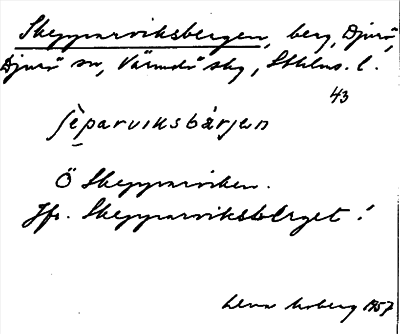 Skepparviksbergen, berg, Djurö,
Djurö sn, Värmdö skg, Sthlms. l.
43
ʃèparviksbärjen
Ö Skepparviken.
Jfr. Skepparviksberget!
Lena Moberg 1957